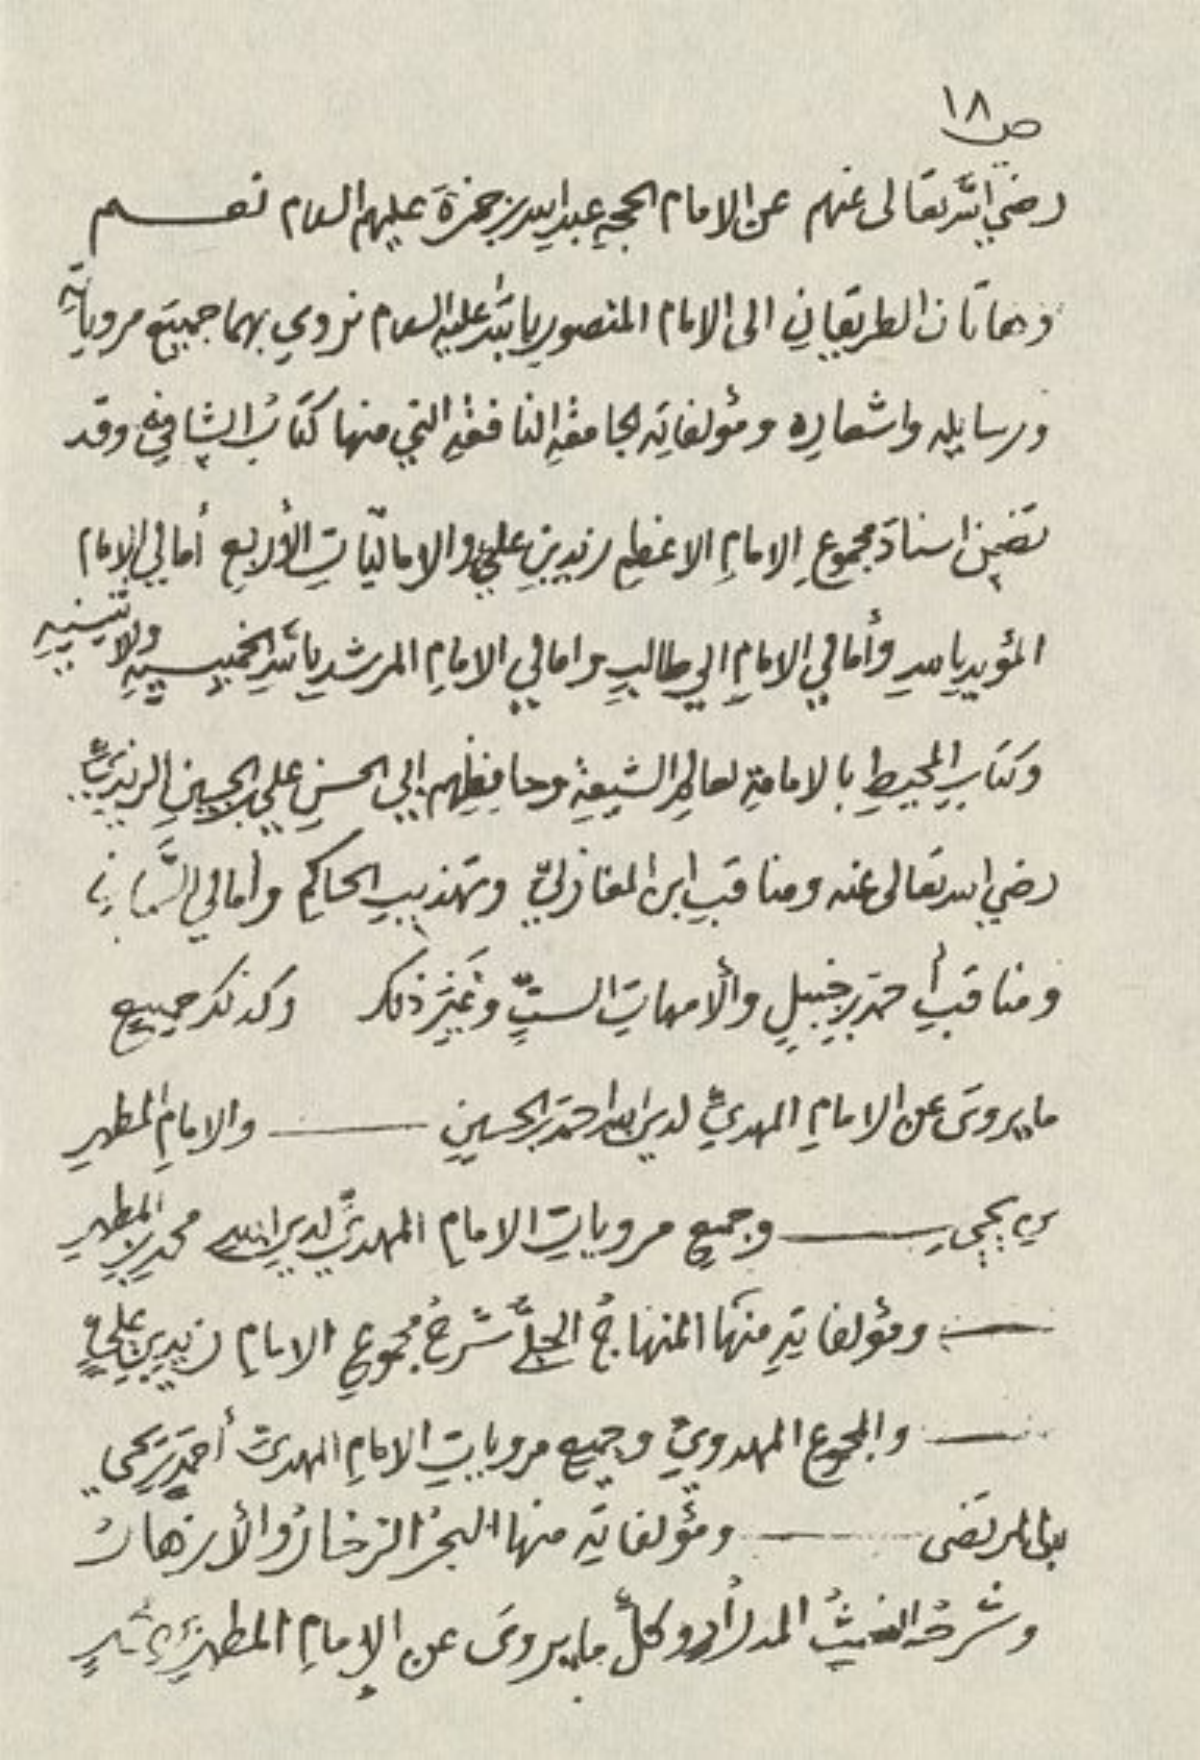 ص ١٨
رضي الله تعالى عنهم عن الامام الحجة عبدالله بن حمزة عليهم السلام نعم
وهاتان الطريقان الى الامام المنصور بالله عليه السلام نروي بهما جميع مروياته
ورسايله واشعاره ومؤلفاته الجامعة النافعة التي منها كتاب الشافي وقد
تضمن اسناد مجموع الامام الاعظم زيد بن علي والاماليات الأربع أمالي الامام
المؤيد بالله وأمالي الامام ابي طالب وامالي الامام المرشد بالله الخميسية والاثنينية
وكتاب المحيط بالامامة لعالم الشيعة وحافظهم ابي الحسن علي بن الحسين الزيدي
رضي الله تعالى عنه ومناقب ابن المغازلي وتهذيب الحاكم وأمالي السمان
ومناقب أحمد بن حنبل والأمهات الست وغير ذلك وكذلك جميع
ما يروى عن الامام المهدي لدين الله احمد بن الحسين والامام المطهر
بن يحيى وجميع مرويات الامام المهدي لدين الله محمد بن المطهر
ومؤلفاته منها المنهاج الجلي شرح مجموع الامام زيد بن علي
والمجموع المهدوي وجميع مرويات الامام المهدي أحمد بن يحيى
بن المرتضى ومؤلفاته منها البحر الزخار والأزهار
وشرحه الغيث المدرار وكل ما يروى عن الإمام المطهر بن